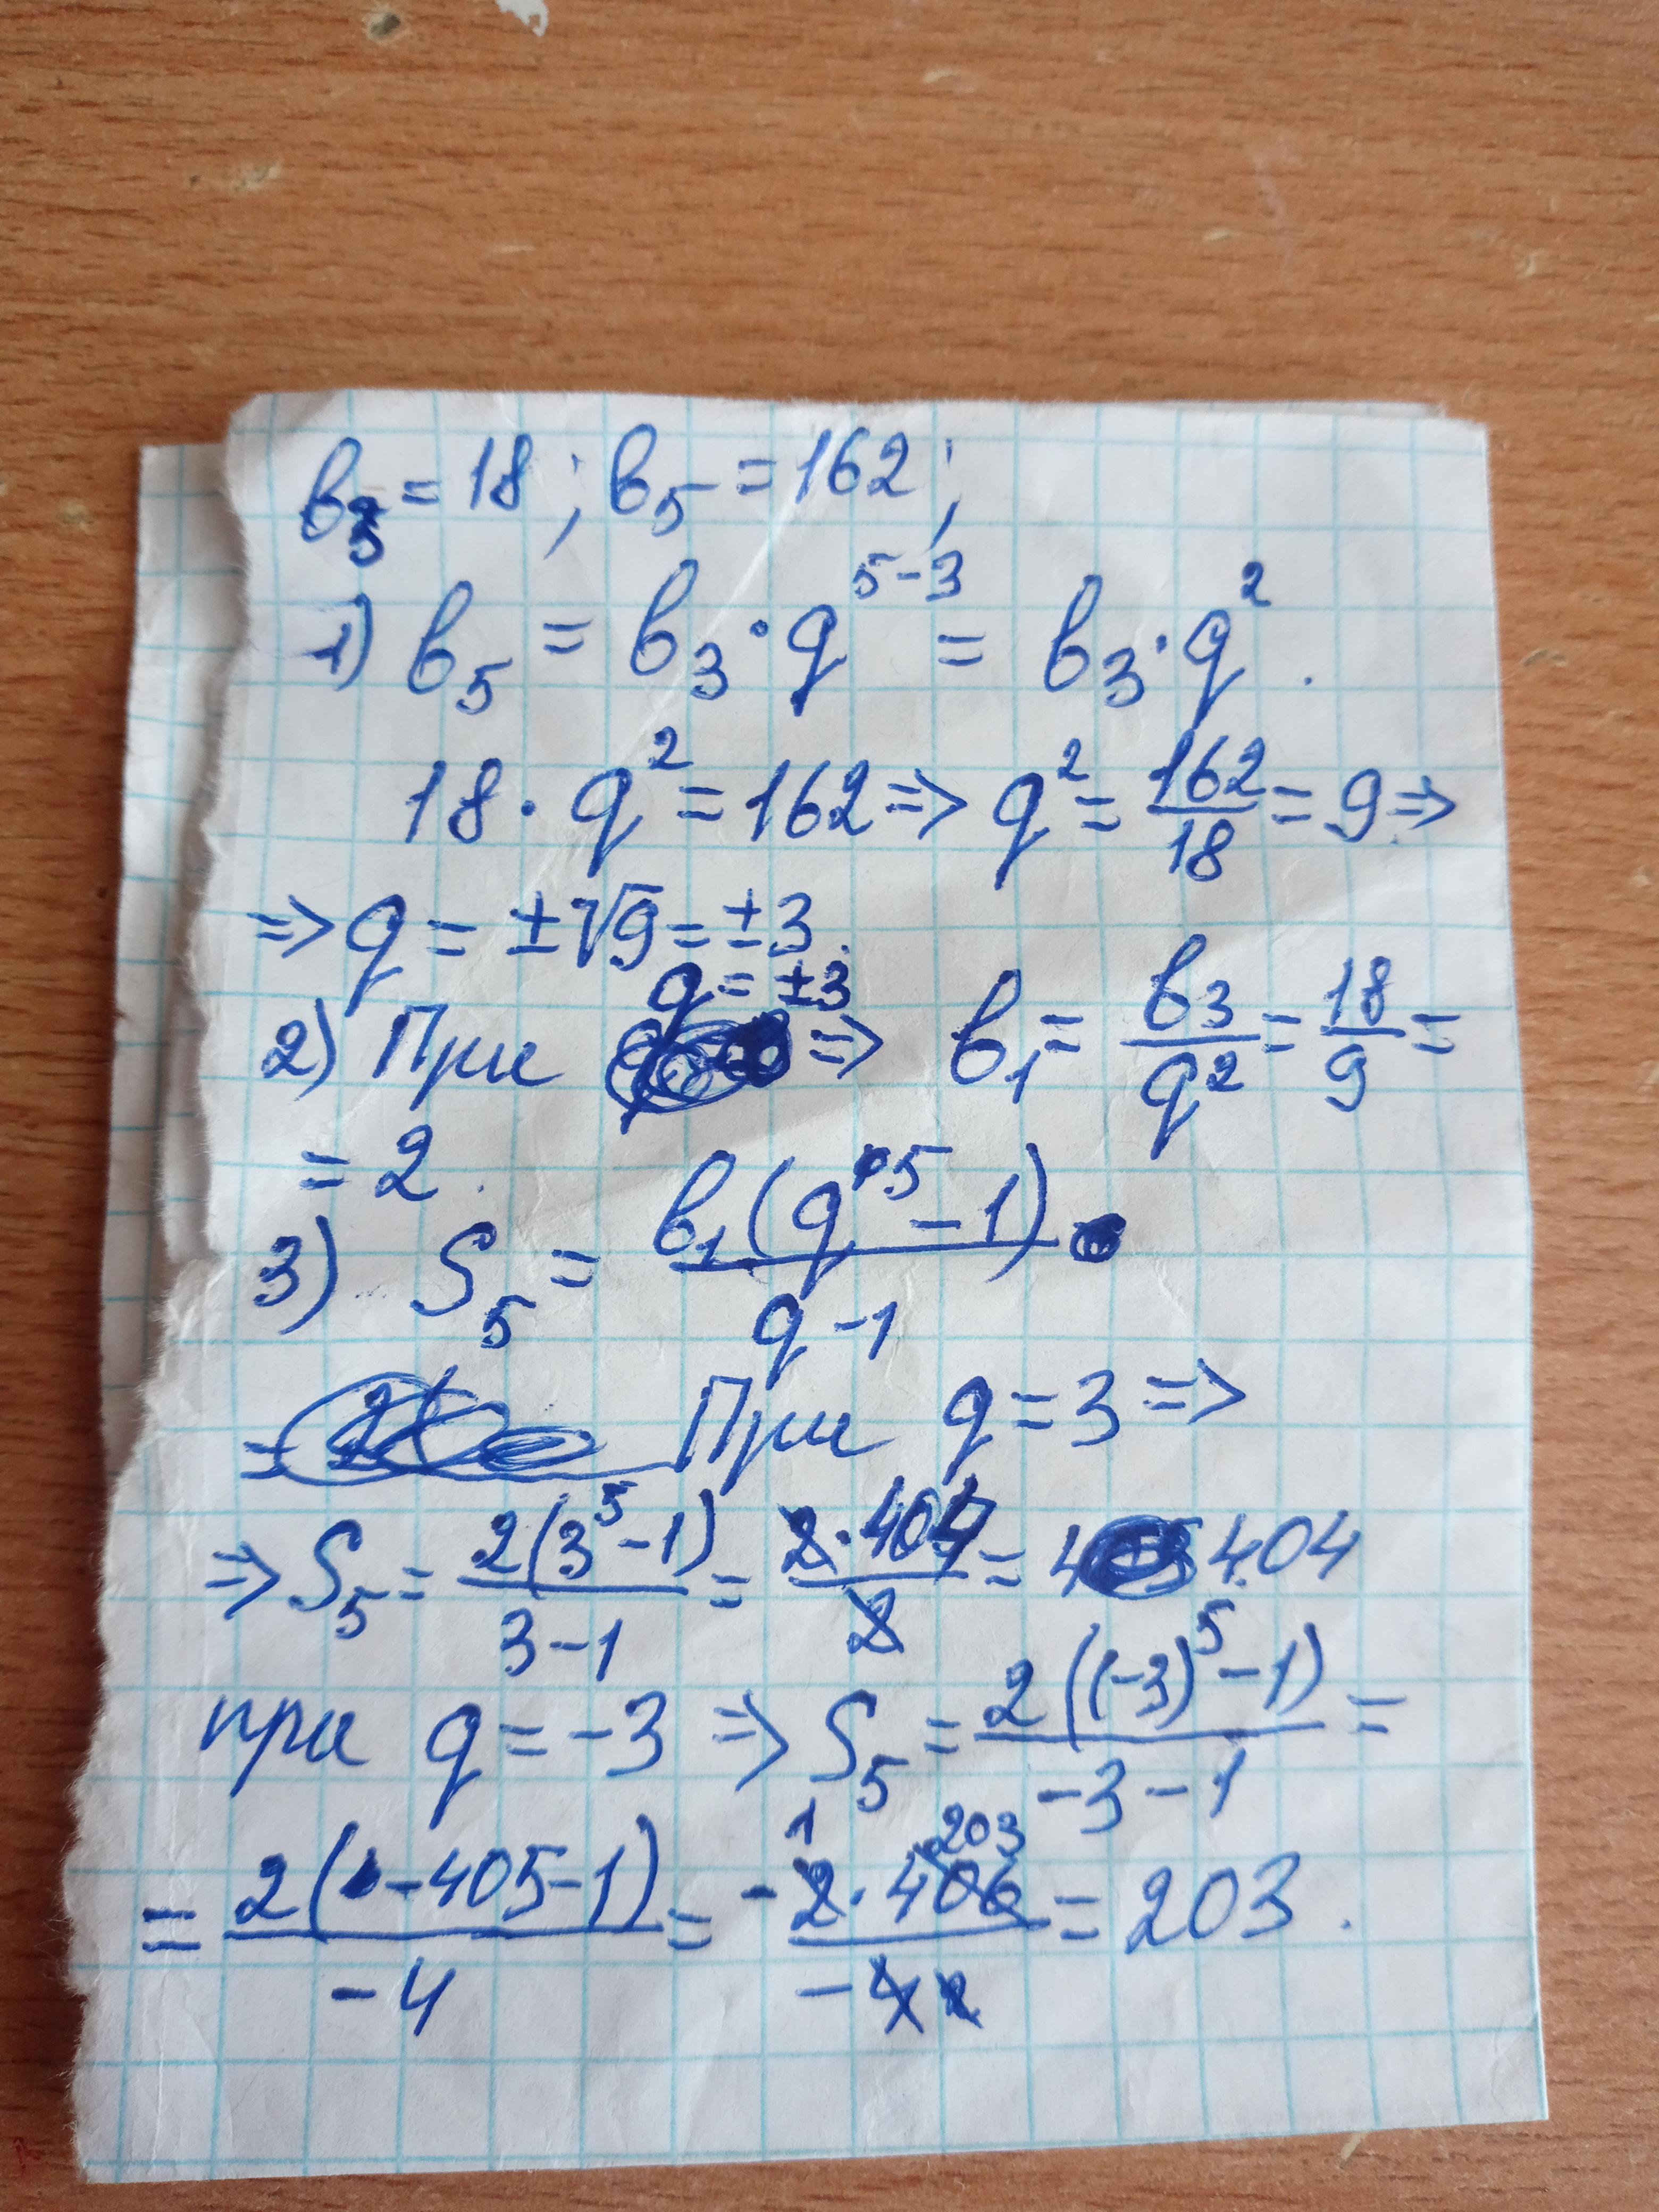 в₃ = 18 ; в₅ = 162 ;
1) в₅ = в₃ · q⁵⁻³ = в₃ · q² .
18 · q² = 162 => q² = 162/18 = 9 =>
=> q = ±√9 = ±3 .
2) При q = ±3 => в₁ = в₃/q² = 18/9 =
= 2 .
3) S₅ = в₁(q⁵ - 1)/(q - 1)
При q = 3 =>
=> S₅ = 2(3⁵ - 1)/(3 - 1) = 2 · 404/2 = 404
при q = -3 => S₅ = 2((-3)⁵ - 1)/(-3 - 1) =
= 2(-405 - 1)/(-4) = -2 · 406/(-4) = 203 .